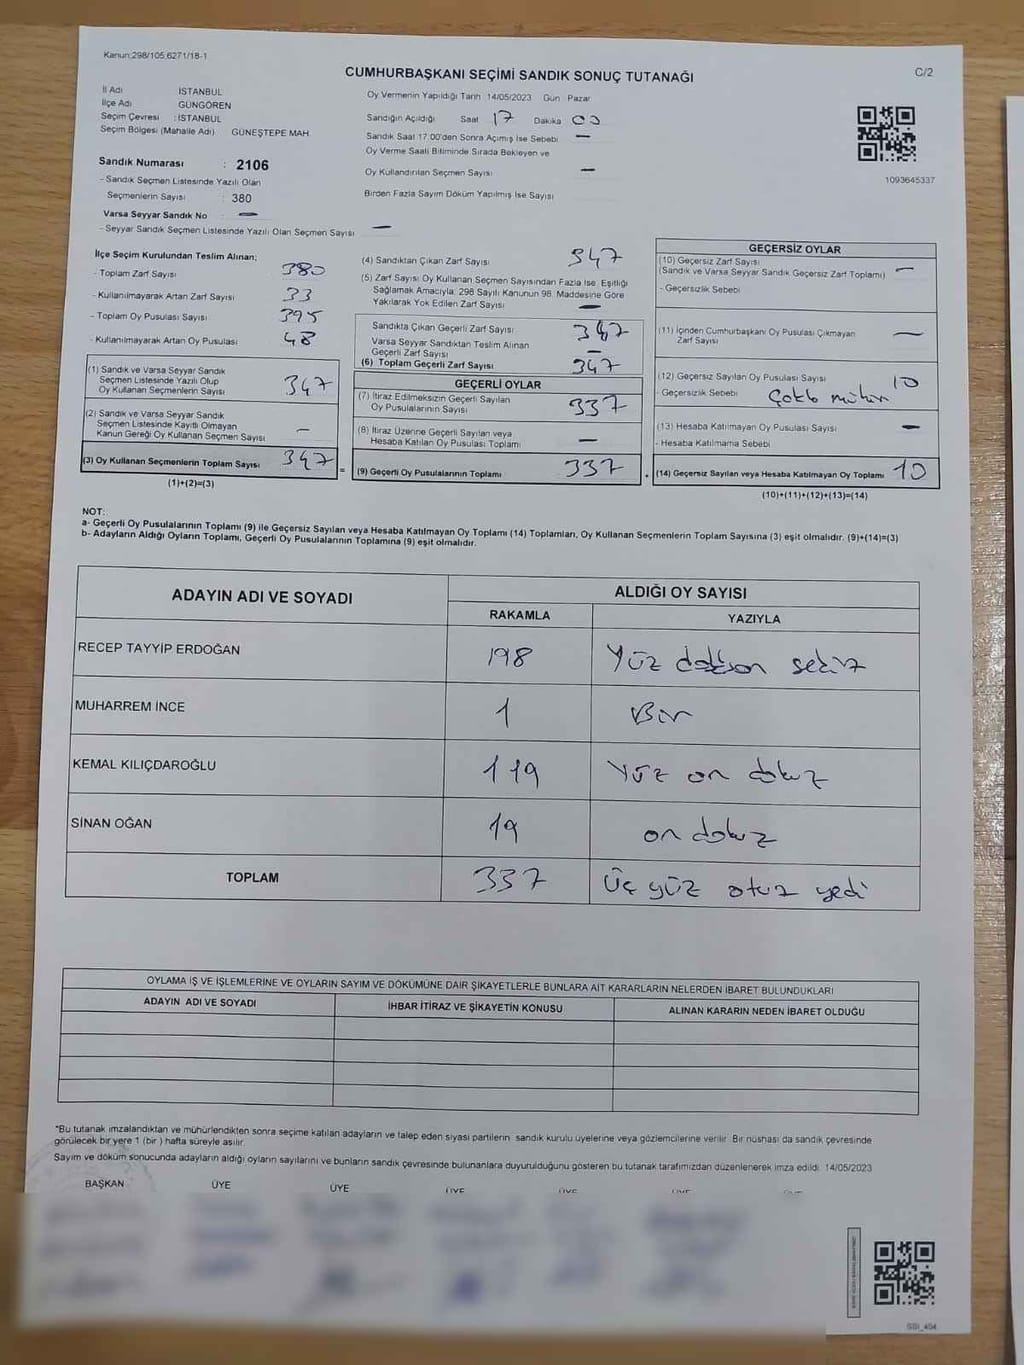 Kanun:298/105,6271/18-1
C/2
CUMHURBAŞKANI SEÇİMİ SANDIK SONUÇ TUTANAĞI
İl Adı : İSTANBUL
İlçe Adı : GÜNGÖREN
Seçim Çevresi : İSTANBUL
Seçim Bölgesi (Mahalle Adı) GÜNEŞTEPE MAH.
Oy Vermenin Yapıldığı Tarih 14/05/2023 Gün Pazar
Sandığın Açıldığı Saat 17 Dakika 00
Sandık Saat 17:00'den Sonra Açımış İse Sebebi —
Oy Verme Saati Bitiminde Sırada Bekleyen ve
Oy Kullandırılan Seçmen Sayısı —
Birden Fazla Sayım Döküm Yapılmış İse Sayısı
1093645337
Sandık Numarası : 2106
- Sandık Seçmen Listesinde Yazılı Olan
Seçmenlerin Sayısı : 380
Varsa Seyyar Sandık No : —
- Seyyar Sandık Seçmen Listesinde Yazılı Olan Seçmen Sayısı —
İlçe Seçim Kurulundan Teslim Alınan;
- Toplam Zarf Sayısı 380
- Kullanılmayarak Artan Zarf Sayısı 33
- Toplam Oy Pusulası Sayısı 395
- Kullanılmayarak Artan Oy Pusulası 48
(1) Sandık ve Varsa Seyyar Sandık
Seçmen Listesinde Yazılı Olup
Oy Kullanan Seçmenlerin Sayısı 347
(2) Sandık ve Varsa Seyyar Sandık
Seçmen Listesinde Kayıtlı Olmayan
Kanun Gereği Oy Kullanan Seçmen Sayısı —
(3) Oy Kullanan Seçmenlerin Toplam Sayısı 347
(1)+(2)=(3)
(4) Sandıktan Çıkan Zarf Sayısı 347
(5) Zarf Sayısı Oy Kullanan Seçmen Sayısından Fazla İse, Eşitliği
Sağlamak Amacıyla, 298 Sayılı Kanunun 98. Maddesine Göre
Yakılarak Yok Edilen Zarf Sayısı —
Sandıkta Çıkan Geçerli Zarf Sayısı 347
Varsa Seyyar Sandıktan Teslim Alınan
Geçerli Zarf Sayısı —
(6) Toplam Geçerli Zarf Sayısı 347
GEÇERLİ OYLAR
(7) İtiraz Edilmeksizin Geçerli Sayılan
Oy Pusulalarının Sayısı 337
(8) İtiraz Üzerine Geçerli Sayılan veya
Hesaba Katılan Oy Pusulası Toplamı —
= (9) Geçerli Oy Pusulalarının Toplamı 337
GEÇERSİZ OYLAR
(10) Geçersiz Zarf Sayısı
(Sandık ve Varsa Seyyar Sandık Geçersiz Zarf Toplamı) —
- Geçersizlik Sebebi
(11) İçinden Cumhurbaşkanı Oy Pusulası Çıkmayan
Zarf Sayısı —
(12) Geçersiz Sayılan Oy Pusulası Sayısı 10
- Geçersizlik Sebebi Çoklu mühür
(13) Hesaba Katılmayan Oy Pusulası Sayısı —
- Hesaba Katılmama Sebebi
+ (14) Geçersiz Sayılan veya Hesaba Katılmayan Oy Toplamı 10
(10)+(11)+(12)+(13)=(14)
NOT:
a- Geçerli Oy Pusulalarının Toplamı (9) ile Geçersiz Sayılan veya Hesaba Katılmayan Oy Toplamı (14) Toplamları, Oy Kullanan Seçmenlerin Toplam Sayısına (3) eşit olmalıdır. (9)+(14)=(3)
b- Adayların Aldığı Oyların Toplamı, Geçerli Oy Pusulalarının Toplamına (9) eşit olmalıdır.
ADAYIN ADI VE SOYADI
ALDIĞI OY SAYISI
RAKAMLA YAZIYLA
RECEP TAYYİP ERDOĞAN 198 Yüz doksan sekiz
MUHARREM İNCE 1 Bir
KEMAL KILIÇDAROĞLU 119 Yüz on dokuz
SİNAN OĞAN 19 on dokuz
TOPLAM 337 Üç yüz otuz yedi
OYLAMA İŞ VE İŞLEMLERİNE VE OYLARIN SAYIM VE DÖKÜMÜNE DAİR ŞİKAYETLERLE BUNLARA AİT KARARLARIN NELERDEN İBARET BULUNDUKLARI
ADAYIN ADI VE SOYADI İHBAR İTİRAZ VE ŞİKAYETİN KONUSU ALINAN KARARIN NEDEN İBARET OLDUĞU
*Bu tutanak imzalandıktan ve mühürlendikten sonra seçime katılan adayların ve talep eden siyasi partilerin sandık kurulu üyelerine veya gözlemcilerine verilir. Bir nüshası da sandık çevresinde
görülecek bir yere 1 (bir ) hafta süreyle asılır.
Sayım ve döküm sonucunda adayların aldığı oyların sayılarını ve bunların sandık çevresinde bulunanlara duyurulduğunu gösteren bu tutanak tarafımızdan düzenlenerek imza edildi. 14/05/2023
BAŞKAN ÜYE ÜYE ÜYE ÜYE ÜYE